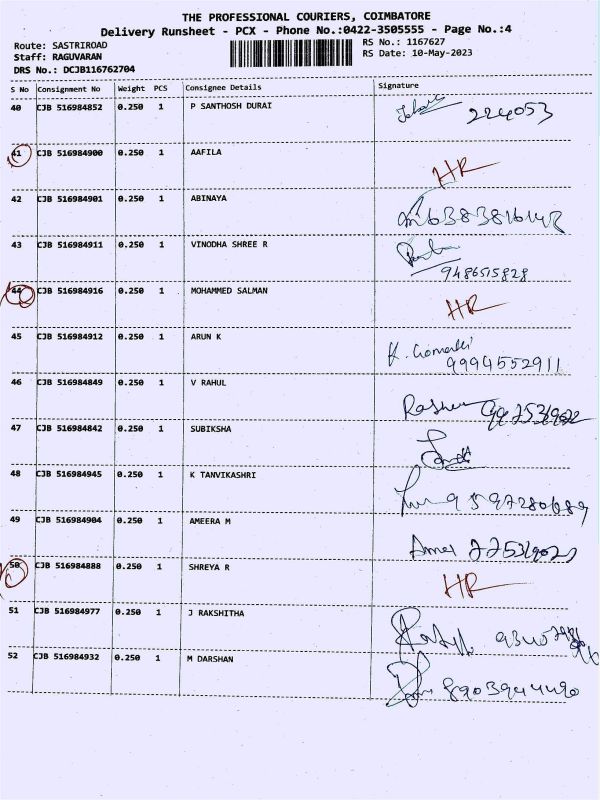 THE PROFESSIONAL COURIERS, COIMBATORE
Delivery Runsheet - PCX - Phone No.:0422-3505555 - Page No.:4
Route: SASTRIROAD
RS No.: 1167627
Staff: RAGUVARAN
RS Date: 10-May-2023
DRS No.: DCJB116762704
S No Consignment No Weight PCS Consignee Details Signature
40 CJB 516984852 0.250 1 P SANTHOSH DURAI 224053
41 CJB 516984900 0.250 1 AAFILA HR
42 CJB 516984901 0.250 1 ABINAYA
43 CJB 516984911 0.250 1 VINODHA SHREE R
9486515828
44 CJB 516984916 0.250 1 MOHAMMED SALMAN HR
45 CJB 516984912 0.250 1 ARUN K
9994552911
46 CJB 516984849 0.250 1 V RAHUL
47 CJB 516984842 0.250 1 SUBIKSHA
48 CJB 516984945 0.250 1 K TANVIKASHRI 9597280689
49 CJB 516984904 0.250 1 AMEERA M
50 CJB 516984888 0.250 1 SHREYA R HR
51 CJB 516984977 0.250 1 J RAKSHITHA
52 CJB 516984932 0.250 1 M DARSHAN 8903944490